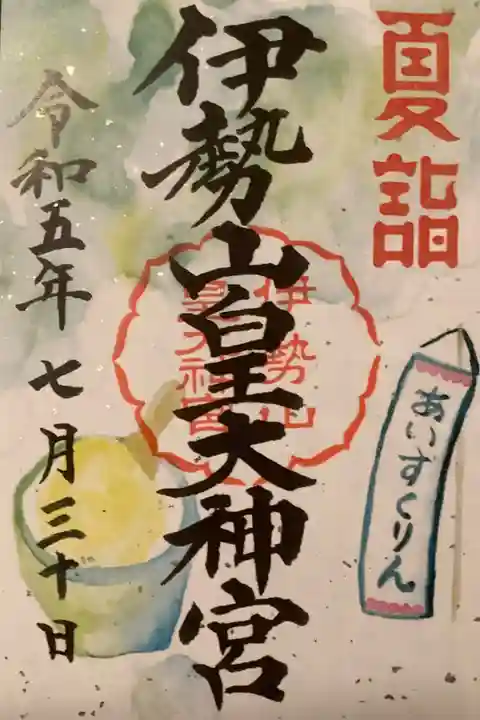 夏詣
伊勢山皇大神宮
伊勢山
皇大神宮
令和五年七月三十日
あいすくりん